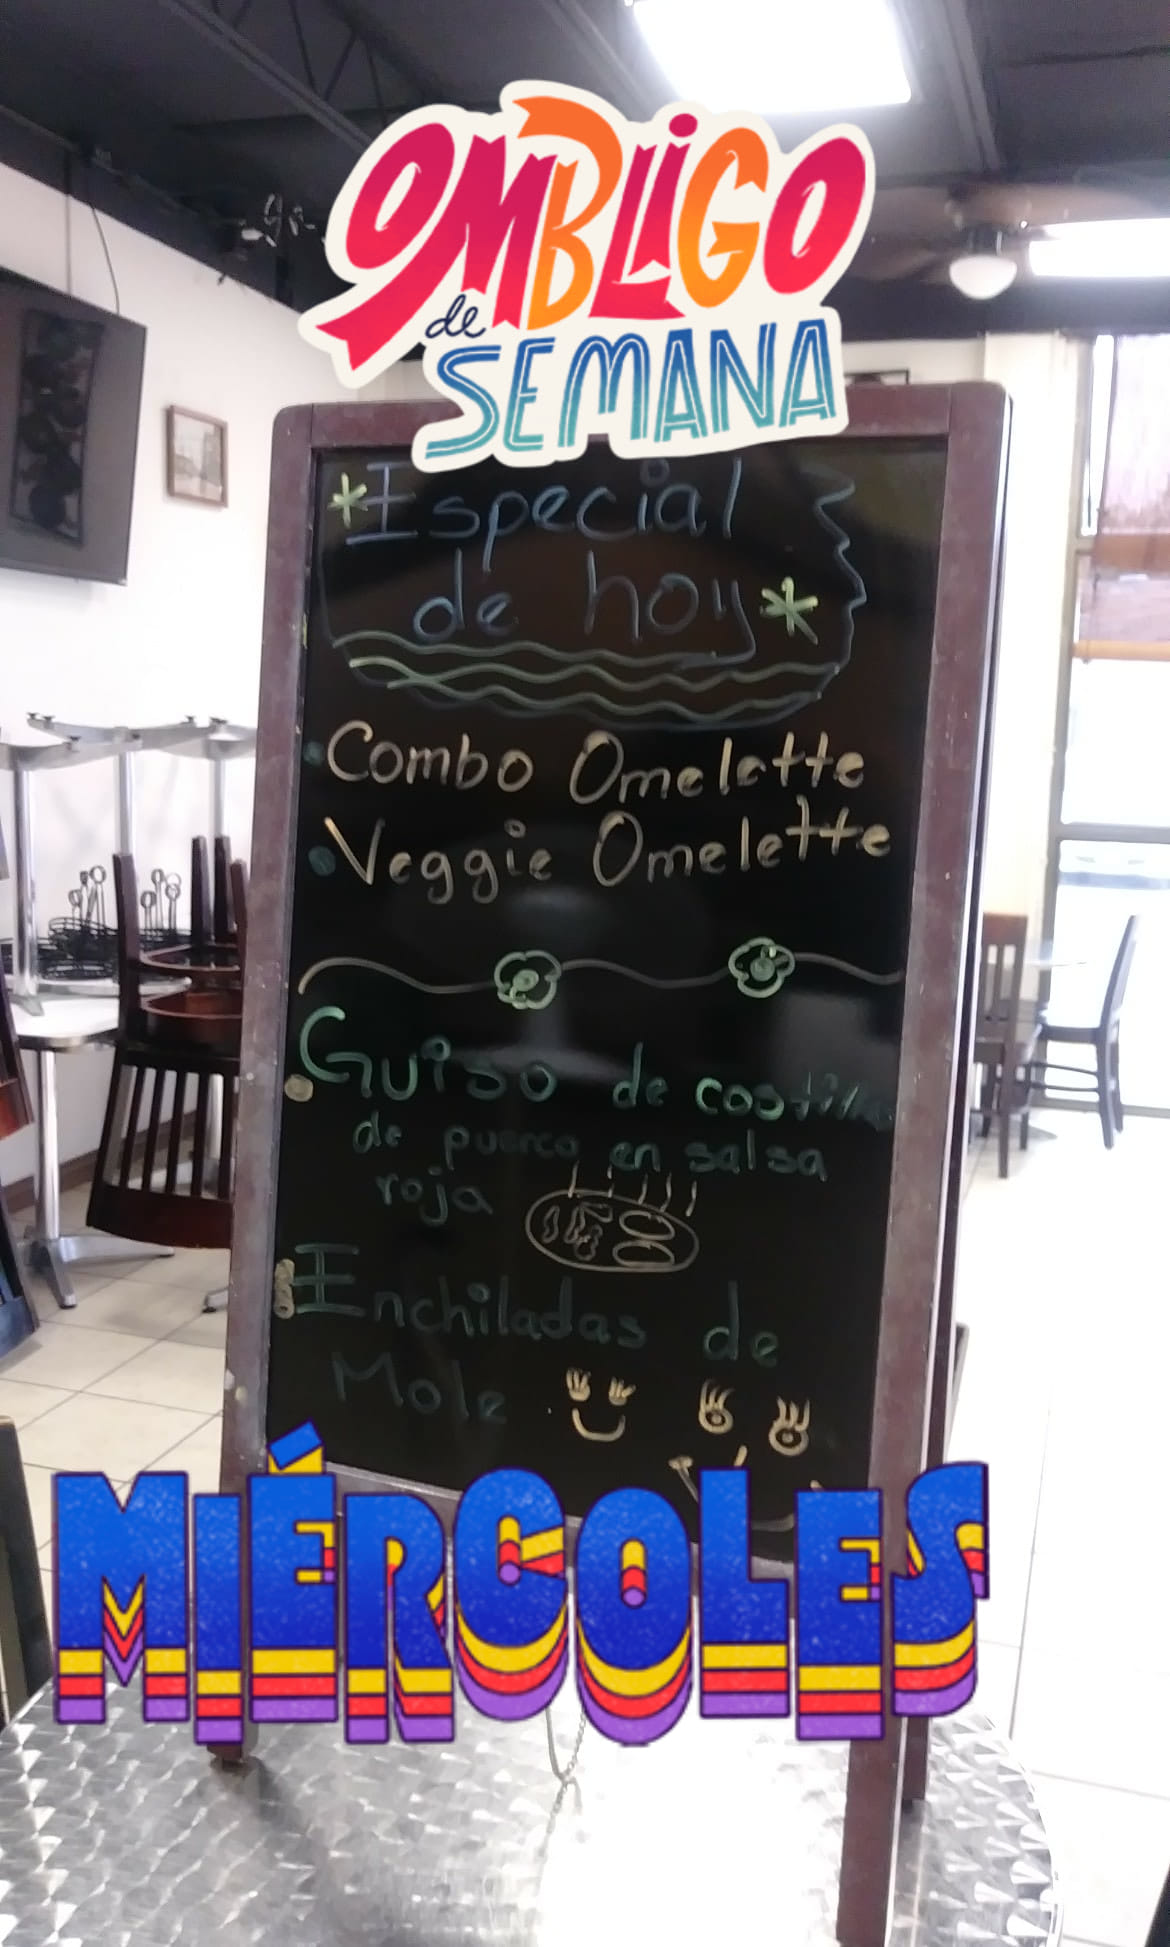 OMBLIGO
de
SEMANA
*Especial
de hoy*
Combo Omelette
Veggie Omelette
Guiso de costilla
de puerco en salsa
roja
Enchiladas de
Mole
MIÉRCOLES